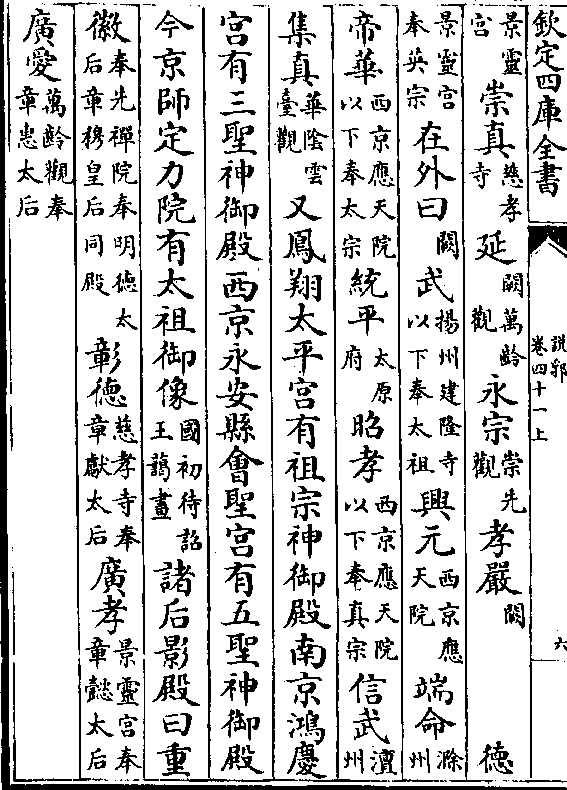 欽定四庫全書
說郛
卷四十一上
六
景靈宮崇真慈孝寺延闕萬齡觀永宗崇先觀孝嚴闕德
景靈宮奉英宗在外曰闕武揚州建隆寺以下奉太祖興元西京應天院端命滁州
帝華西京應天院以下奉太宗統平太原府昭孝西京應天院以下奉真宗信武澶州
集真華陰雲臺觀又鳳翔太平宮有祖宗神御殿南京鴻慶
宮有三聖神御殿西京永安縣會聖宮有五聖神御殿
今京師定力院有太祖御像國初待詔王藹畫諸后影殿曰重
徽奉先禪院奉明德太后章穆皇后同殿彰德慈孝寺奉章獻太后廣孝景靈宮奉章懿太后
廣愛萬齡觀奉章惠太后